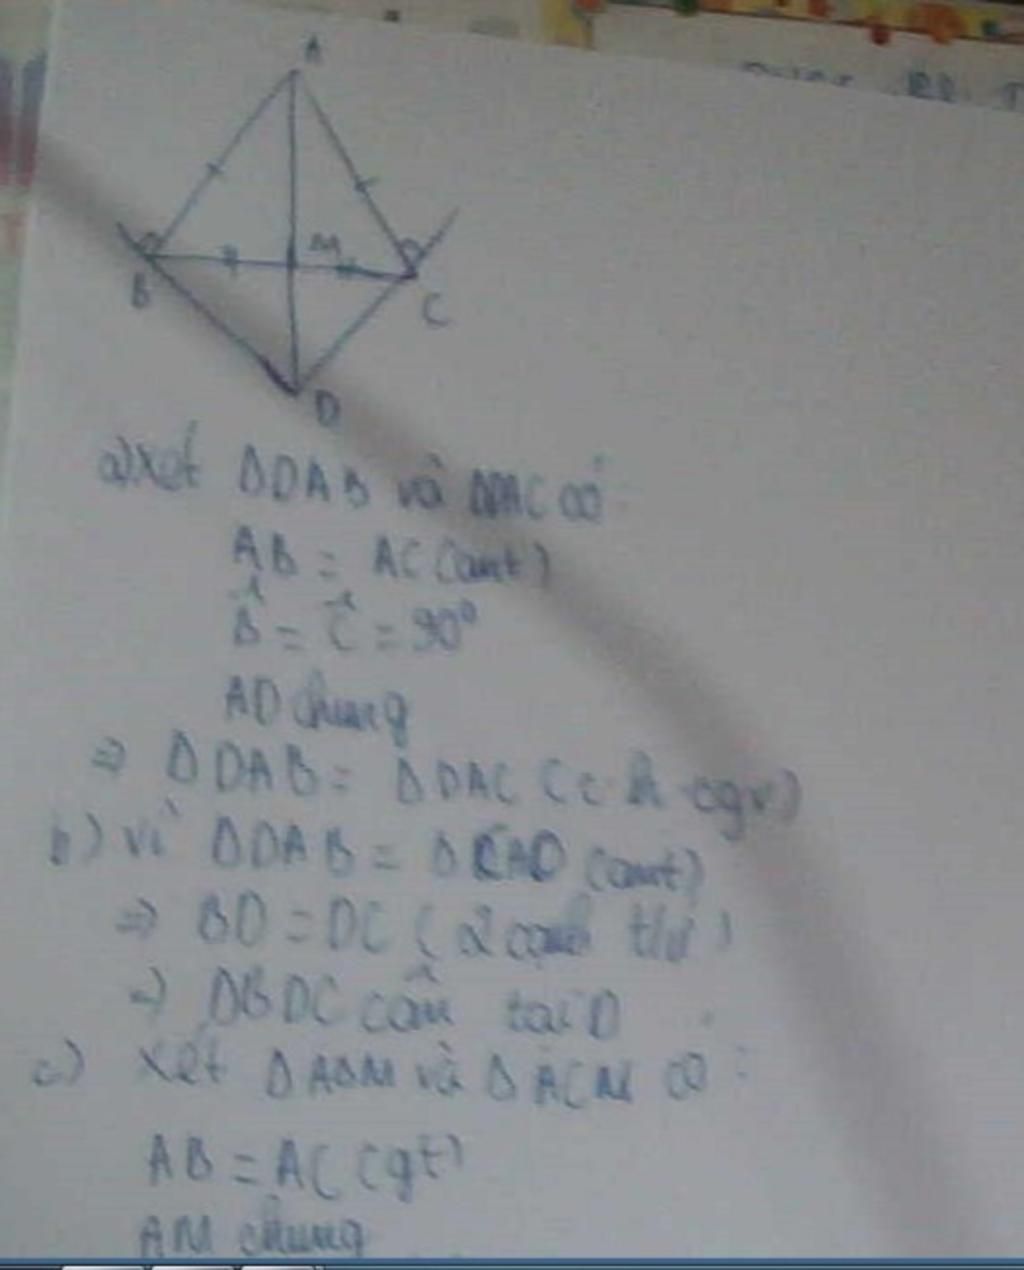 A
M
B
C
D
a) Xét ΔDAB và ΔDAC có:
AB = AC (cmt)
B̂ = Ĉ = 90°
AD chung
⇒ ΔDAB = ΔDAC (ch-cgv)
b) Vì ΔDAB = ΔCAD (cmt)
⇒ BD = DC (2 cạnh t/ư)
⇒ ΔBDC cân tại D
c) Xét ΔABM và ΔACM có:
AB = AC (gt)
AM chung